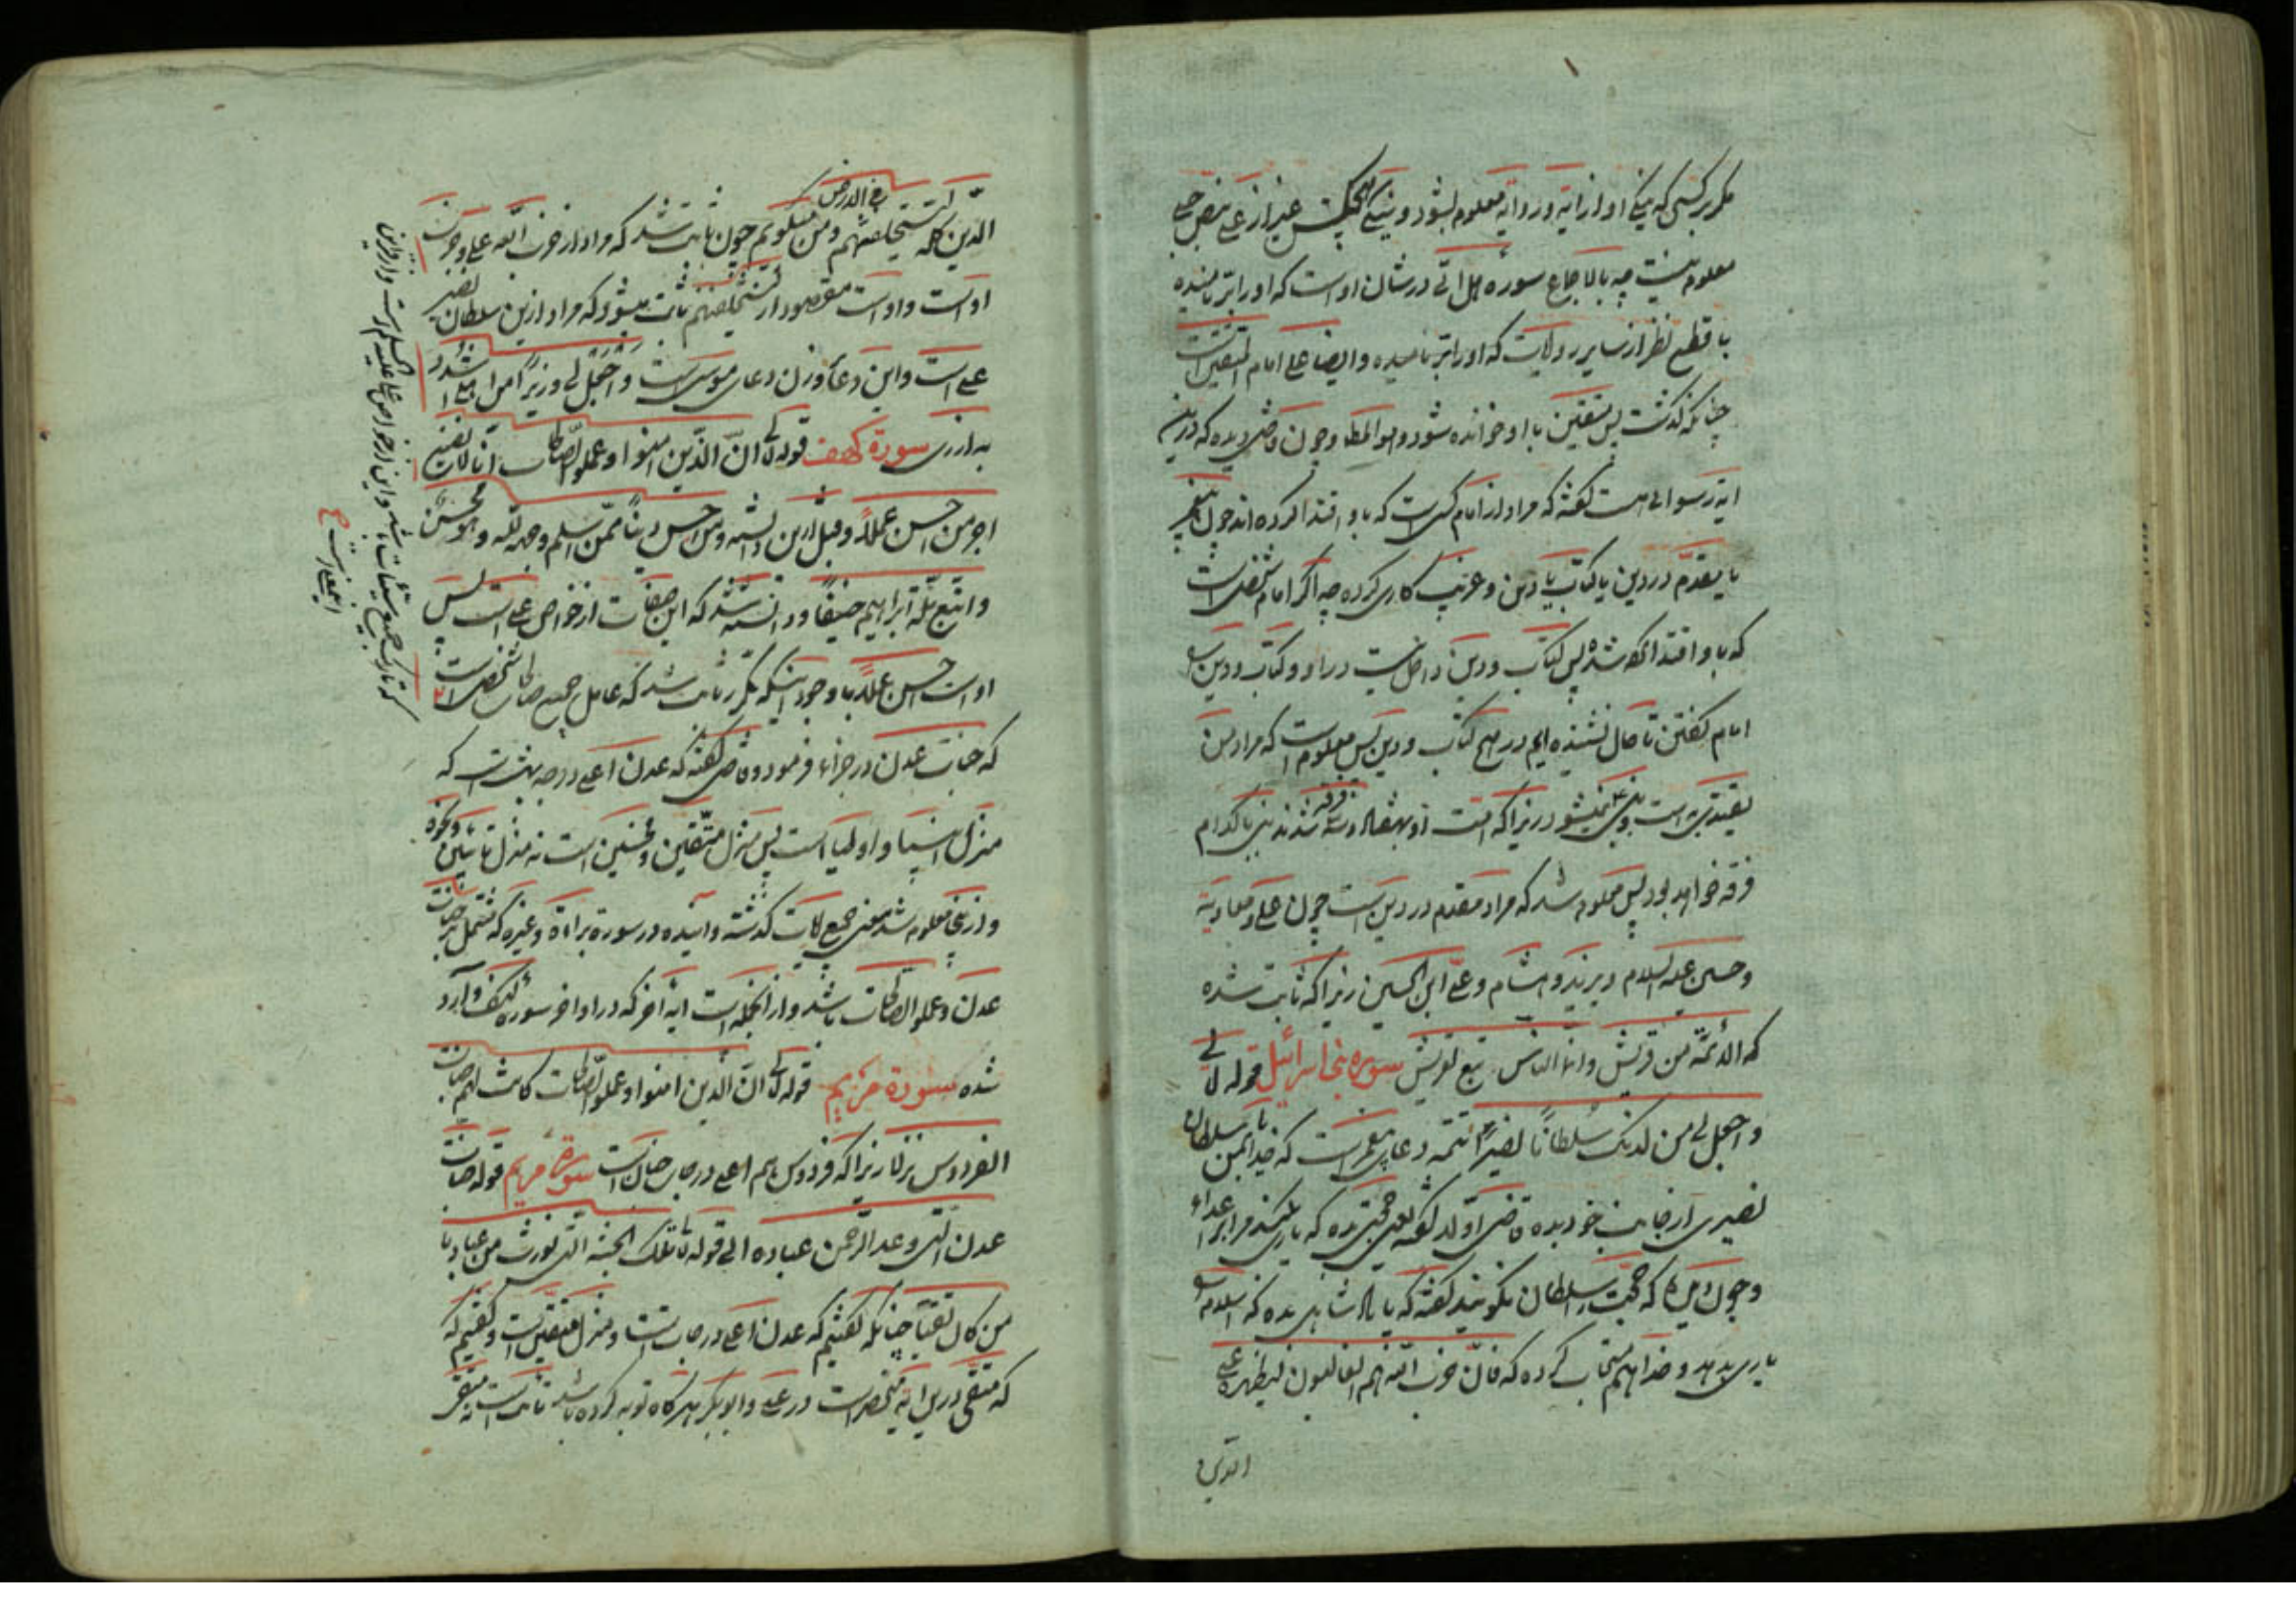 مکر بر کسی که نیکی او از آیه و روایه معلوم بشود و نیکی هیچکس غیر از علی بنص جلی
معلوم نیست چه بالاجماع سوره هل اتی در شان اوست که او را ابرار نامیده
با قطع نظر از سایر روایات که او را ابرار نامیده و ایضا علی امام المتقین است
چنانکه گذشت پس متقین با او خوانده شود و هو المط و چون قاضی دیده که درین
ایه رسوائی هست گفته که مراد از امام کسی است که باو اقتدا کرده اند چون پیغمبر
یا مقدم در دین یا کتاب یا دین و غریب کاری کرده چه اگر امام شخصی است
که باو اقتدا کرده شده پس کتاب و دین داخل نیست در او و کتاب و دین را
امام گفتن تا حال نشنیده ایم در هیچ کتاب و دین پس معلوم است که مراد من
یقتدی به است و نبی نمیشود زیرا که امت او بهفتاد و سه فرقه شدند نبی با کدام
فرقه خواهد بود پس معلوم شد که مراد مقدم در دین است چون علی و معاویه
و حسین علیه السلام و یزید و هشام و علی ابن الحسین زیرا که ثابت شده
که الائمة من قریش و انا الناس تبع لقریش سوره بنی اسرائیل قوله تعالی
و اجعل لی من لدنک سلطانا نصیرا تتمه دعای پیغمبر است که خدایا بمن سلطان
نصیری از جانب خود بده قاضی اولا گفته یعنی حجتی بده که یاری کند مرا بر اعداء
و چون دیده که حجت را سلطان نگویند گفته که یا پادشاهی بده که اسلام را
یاری بدهد و خدا هم مستجاب کرده که فان حزب الله هم الغالبون لیظهره علی
الدین
الدین کله لیستخلفنهم فی الارض و من میکویم چون ثابت شد که مراد از حزب الله علی و حزب
اوست و اوست مقصود از لیستخلفنهم ثابت میشود که مراد ازین سلطان نصیر
علی است و این دعا وزن دعای موسی است و اجعل لی وزیرا من اهلی اشدد
به ازری سورة کهف قوله تعالی ان الذین امنوا و عملوا الصالحات انا لا نضیع
اجر من احسن عملا و قبل ازین دانسته و من احسن دینا ممن اسلم وجهه لله و هو محسن
و اتبع ملة ابراهیم حنیفا و دانسته شد که این صفات از خواص علی است پس
اوست احسن عملا با وجود اینکه مکرر ثابت شد که عامل جمیع صالحات شخصی است
که جنات عدن در جزاء فرمود و قاضی گفته که عدن اعلی درجه بهشت است که
منزل انبیا و اولیا است پس منزل متقین و محسنین است نه منزل تائبین و نحوه
و ازینجا معلوم شد معنی جمیع آیات گذشته و آینده در سورة براءة و غیره که مشتمل بر جنات
عدن و عملوا الصالحات باشد و از آنجمله است ایه آخر که در اواخر سوره الکهف وارد
شده سورة مریم قوله تعالی ان الذین امنوا و عملوا الصالحات کانت لهم جنات
الفردوس نزلا زیرا که فردوس هم اعلی درجات جنان است سورة مریم قوله جنات
عدن التی وعد الرحمن عباده الی قوله تعالی تلک الجنة التی نورث من عبادنا
من کان تقیا چنانکه گفتیم که عدن اعلی درجات است و منزل متقین است و گفتیم که
که متقی درین ایه منحصر است در علی و ابوبکر هرگاه توبه کرده باشد تائب است نه متقی